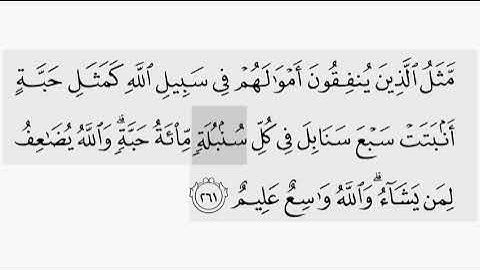 مَّثَلُ ٱلَّذِينَ يُنفِقُونَ أَمۡوَٰلَهُمۡ فِي سَبِيلِ ٱللَّهِ كَمَثَلِ حَبَّةٍ
أَنۢبَتَتۡ سَبۡعَ سَنَابِلَ فِي كُلِّ سُنۢبُلَةٖ مِّاْئَةُ حَبَّةٖۗ وَٱللَّهُ يُضَٰعِفُ
لِمَن يَشَآءُۚ وَٱللَّهُ وَٰسِعٌ عَلِيمٌ ٢٦١